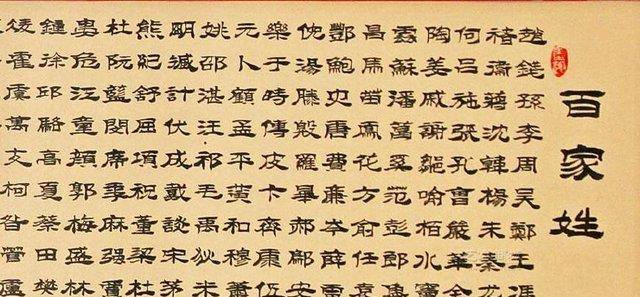 百家姓
趙錢孫李周吳鄭王馮
褚衛蔣沈韓楊朱秦尤
何呂施張孔曹嚴華金
陶姜戚謝鄒喻柏水竇
雲蘇潘葛奚范彭郎魯
昌馬苗鳳花方俞任袁
酆鮑史唐費廉岑薛
倪湯滕殷羅畢郝鄔安
樂于時傅皮卞齊康伍
元卜顧孟平黃和穆蕭
姚邵湛汪祁毛禹狄米
明臧計伏成戴談宋茅
熊紀舒屈項祝董梁杜
杜阮藍閔席季麻强賈
婁危江童顏郭梅盛林
鍾徐邱駱高夏蔡田樊
凌霍虞萬支柯昝管盧